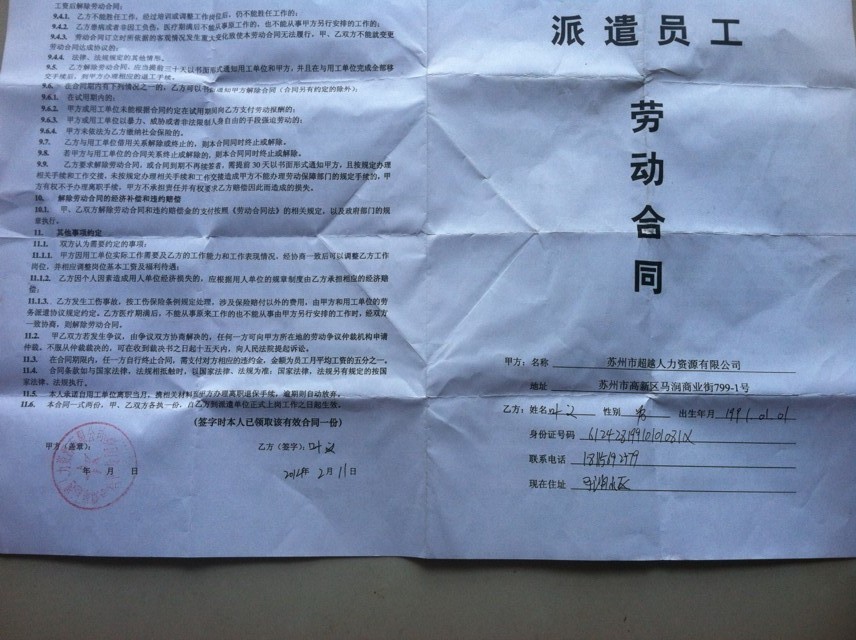 工资后解除劳动合同:
9.4.1. 乙方不能胜任工作，经过培训或调整工作岗位后，仍不能胜任工作的;
9.4.2. 乙方患病或者非因工负伤，医疗期满后不能从事原工作的，也不能从事甲方另行安排的工作的;
9.4.3. 劳动合同订立时所依据的客观情况发生重大变化致使本劳动合同无法履行，甲、乙双方不能就变更
劳动合同达成协议的;
9.4.4. 法律、法规规定的其他情形。
9.5. 乙方解除劳动合同，应当提前三十天以书面形式通知用工单位和甲方，并且在与用工单位完成全部移
交手续后，到甲方办理相应的退工手续。
9.6. 在合同期内有下列情况之一的，乙方可以书面通知甲方解除合同（合同另有约定的除外）:
9.6.1. 在试用期内的;
9.6.2. 甲方或用工单位未能根据合同约定在试用期间向乙方支付劳动报酬的;
9.6.3. 甲方或用工单位以暴力、威胁或者非法限制人身自由的手段强迫劳动的;
9.6.4. 甲方未依法为乙方缴纳社会保险的。
9.7. 乙方与用工单位借用关系解除或终止的，则本合同同时终止或解除。
9.8. 若甲方与用工单位的合同关系终止或解除的，则本合同同时终止或解除。
9.9. 乙方要求解除劳动合同，或合同到期不再续签者，需提前 30 天以书面形式通知甲方，且按规定办理
相关手续和工作交接，未按规定办理相关手续和工作交接造成甲方不能办理劳动保障部门的规定手续的，甲
方有权不予办理离职手续，甲方不承担责任并有权要求乙方赔偿因此而造成的损失。
10. 解除劳动合同的经济补偿和违约赔偿
10.1. 甲、乙双方解除劳动合同和违约赔偿金的支付按照《劳动合同法》的相关规定，以及政府部门的规
章执行。
11. 其他事项约定
11.1. 双方认为需要约定的事项:
11.1.1. 甲方因用工单位实际工作需要及乙方的工作能力和工作表现情况，经协商一致后可以调整乙方工作
岗位，并相应调整岗位基本工资及福利待遇;
11.1.2. 乙方因个人因素造成用人单位经济损失的，应根据用人单位的规章制度由乙方承担相应的经济赔
偿;
11.1.3. 乙方发生工伤事故，按工伤保险条例规定处理，涉及保险赔付以外的费用，由甲方和用工单位的劳
务派遣协议规定约定。乙方医疗期满后，不能从事原来工作的也不能从事由甲方另行安排的工作时，经双方
一致协商，则解除劳动合同，
11.2. 甲乙双方若发生争议，由争议双方协商解决的，任何一方可向甲方所在地的劳动争议仲裁机构申请
仲裁。不服从仲裁裁决的，可在收到裁决书之日起十五天内，向人民法院提起诉讼。
11.3. 在合同期限内，任一方自行终止合同，需支付对方相应的违约金，金额为员工月平均工资的五分之一。
11.4. 合同条款如与国家法律、法规相抵触时，以国家法律、法规为准; 国家法律、法规另有规定的按国
家法律、法规执行。
11.5. 本人承诺自用工单位离职当月，携相关材料到甲方办理离职退保手续，逾期则自动放弃。
11.6. 本合同一式两份，甲、乙双方各执一份，自乙方到派遣单位正式上岗工作之日起生效。
(签字时本人已领取该有效合同一份)
甲方（盖章）:
乙方（签字）: 叶义
年 月 日
2014年 2月 11日
派遣员工
劳
动
合
同
甲方: 名称 苏州市超越人力资源有限公司
地址 苏州市高新区马涧商业街799-1号
乙方: 姓名 叶义 性别 男 出生年月 1991.01.01
身份证号码 61242819910101031X
联系电话
现在住址